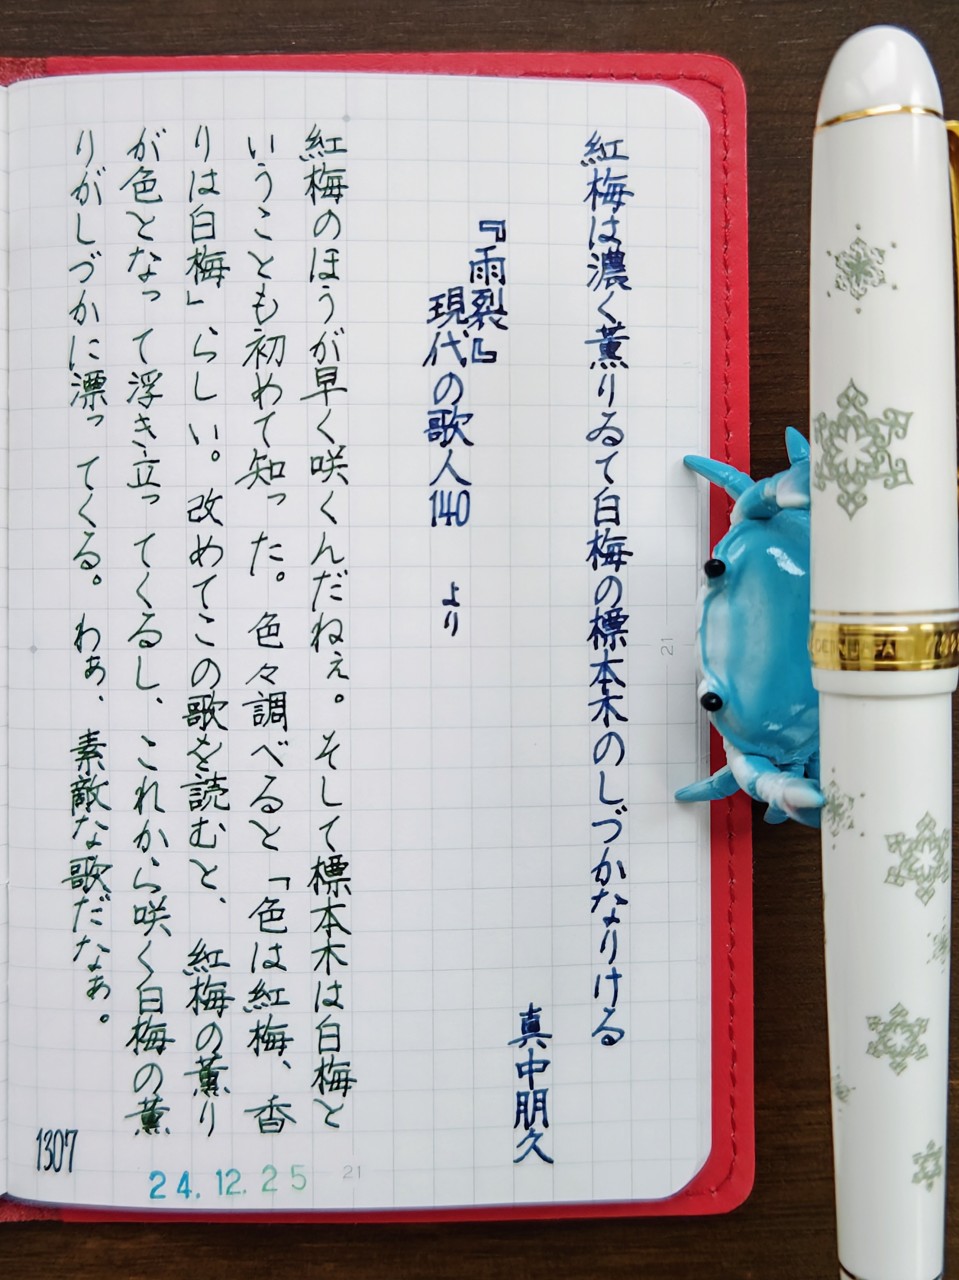 紅梅は濃く薫りゐて白梅の標本木のしづかなりける
真中朋久
『雨裂』
現代の歌人140 より
紅梅のほうが早く咲くんだねぇ。そして標本木は白梅と
いうことも初めて知った。色々調べると「色は紅梅、香
りは白梅」らしい。改めてこの歌を読むと、紅梅の薫り
が色となって浮き立ってくるし、これから咲く白梅の薫
りがしづかに漂ってくる。わぁ、素敵な歌だなぁ。
1307
24.12.25
21
21